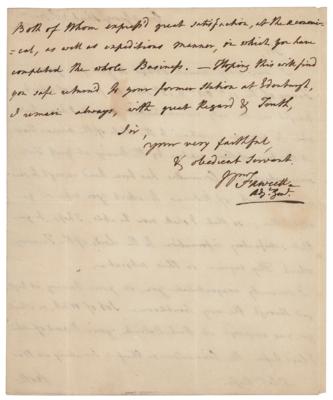 Both of Whom express'd great satisfaction, at the œconomi-
=cal, as well as expeditious manner, in which you have
completed the whole Business. — Hoping this will find
you safe return'd to your former Station at Edinburgh,
I remain always, with great Regard & Truth,
Sir,
your very faithful,
& obedient Servant
Wm Fawcett
Adj. Genl.